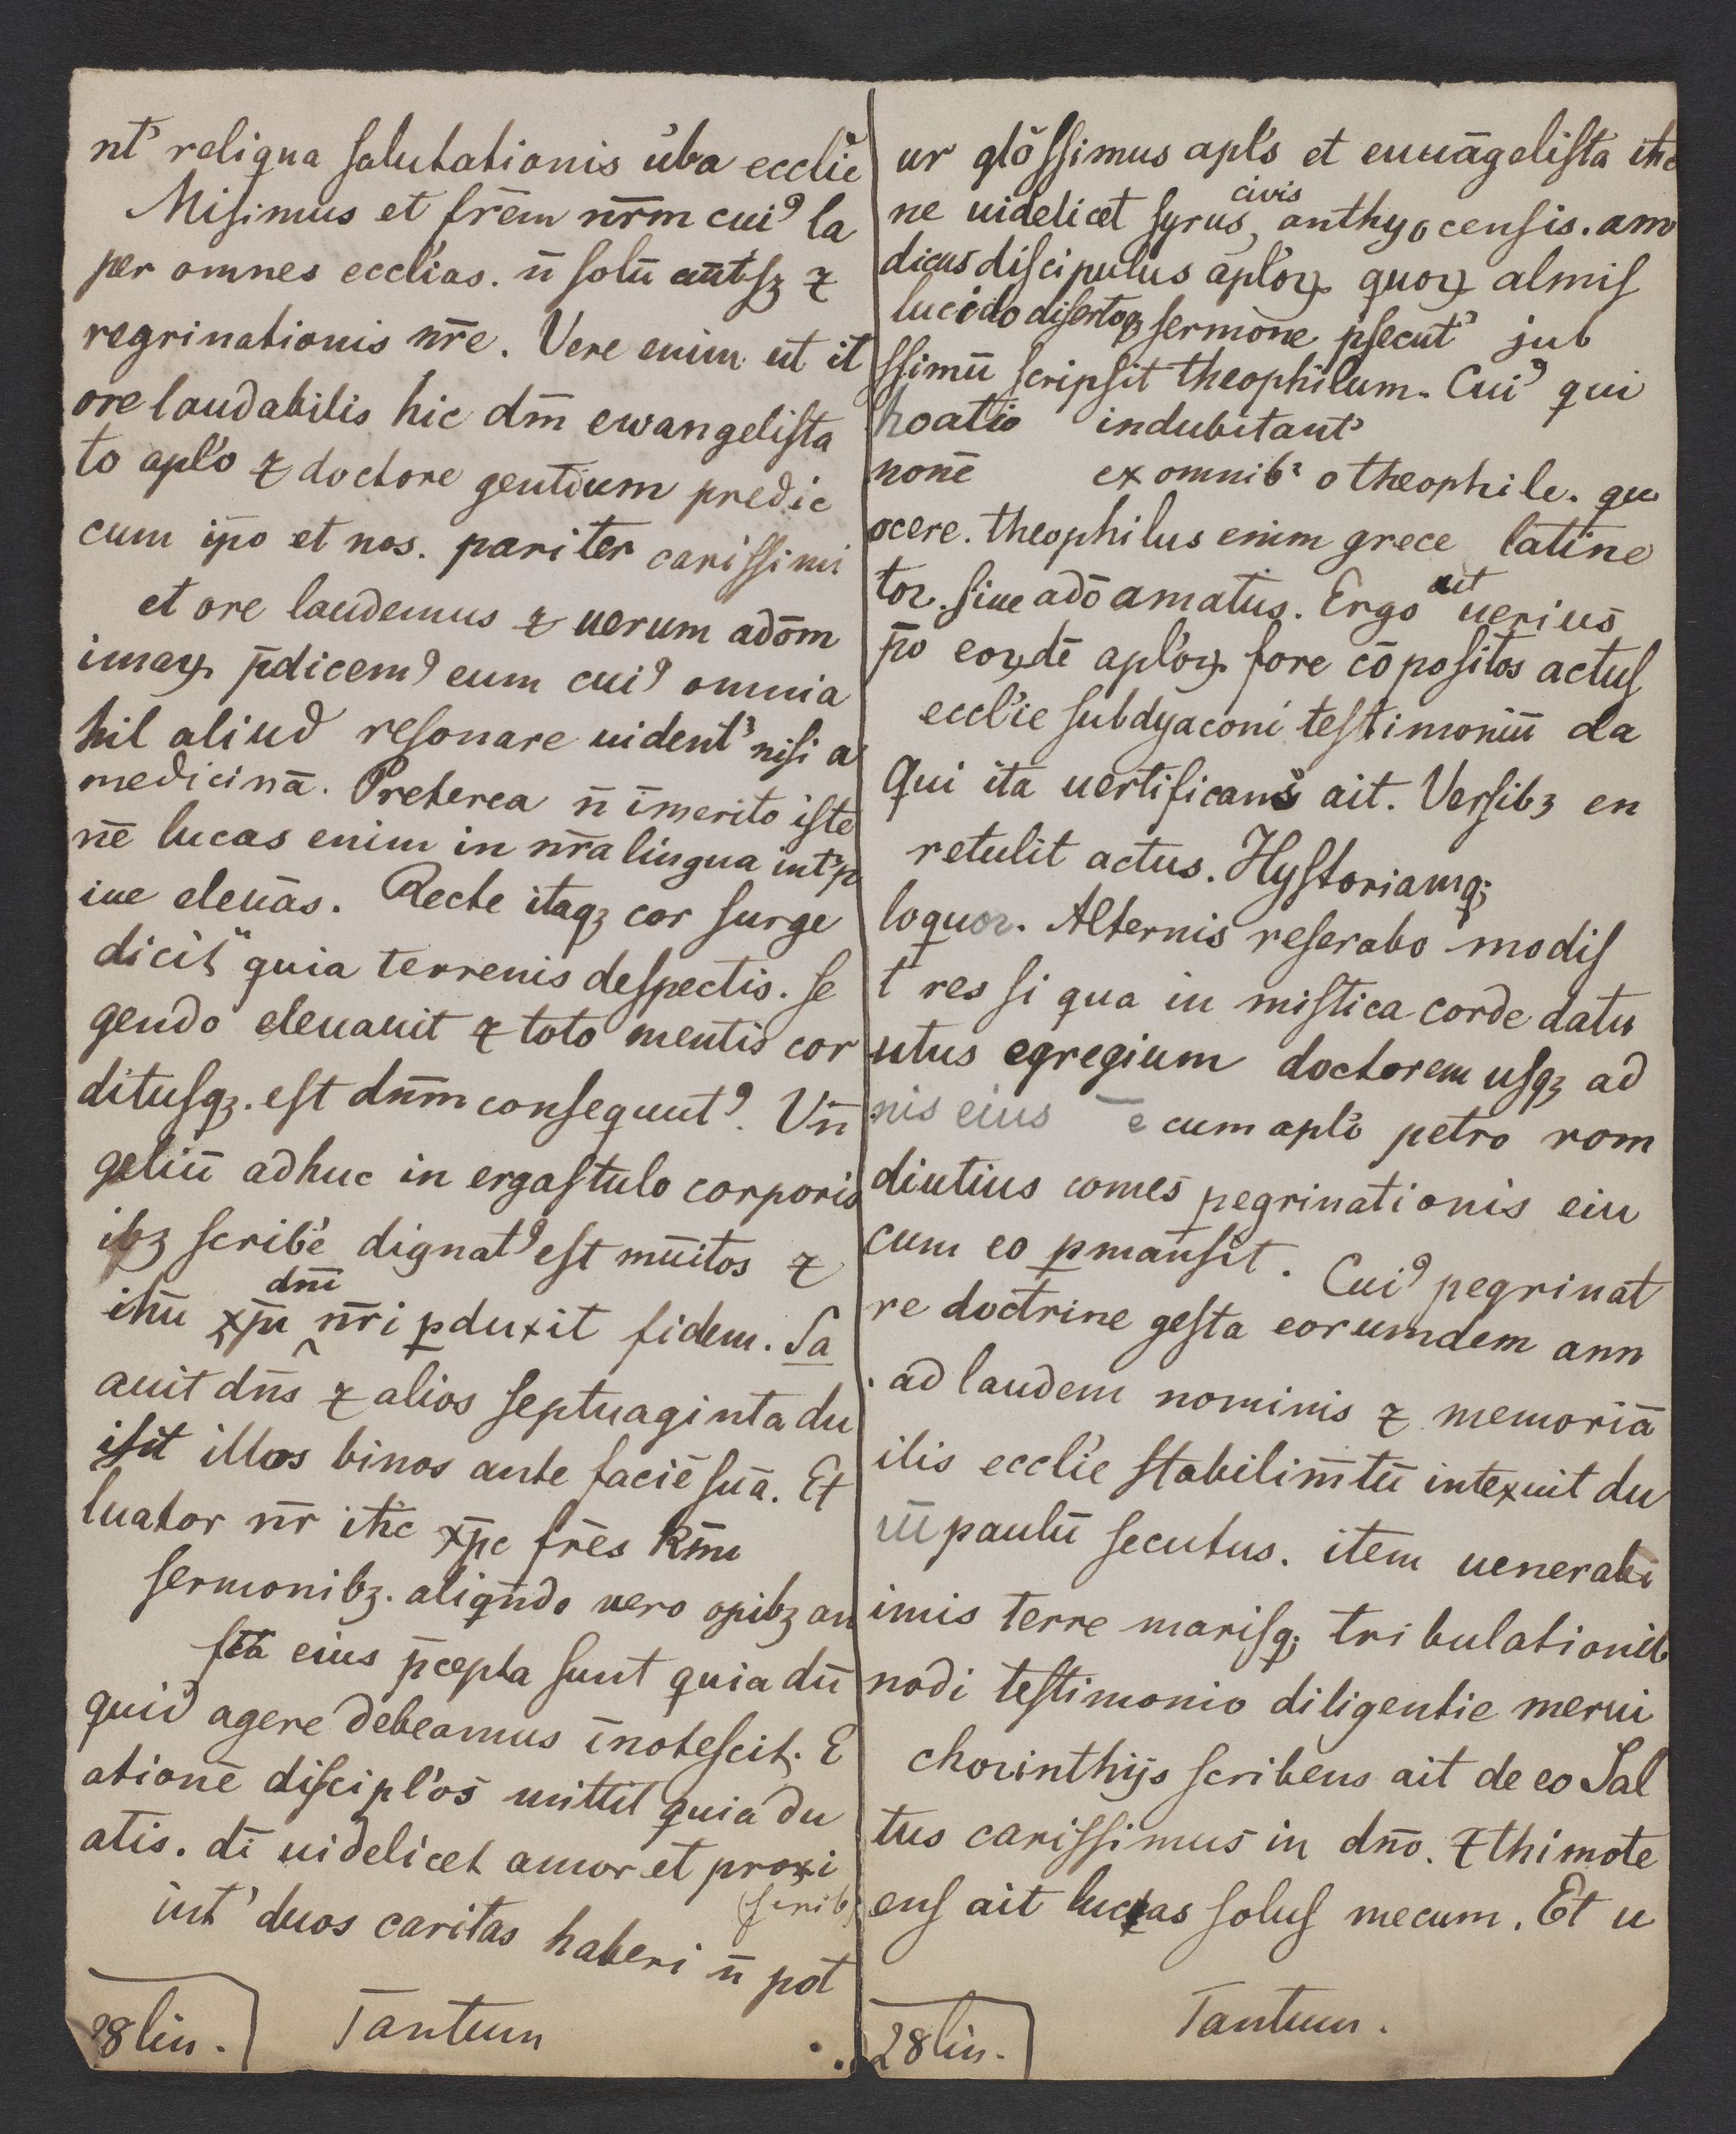 nt᾽ reliqua ſalutationis u᾽ba eccl᾽ie
Miſimus et fr̄em nr̄m cui⁹ la
per omnes eccl᾽ias. n̄ ſolū aūt ſꝫ ⁊
regrinationis nr̄e. Vere enim ut it
ore laudabilis hic dm̄ ewangeliſta
to apl᾽o ⁊ doctore gentium predic
cum ip̄o et nos. pariter cariſſimi
et ore laudemus ⁊ uerum adōm
imaꝝ p̄dicem⁹ eum cui⁹ omnia
hil aliud reſonare uident᾽ niſi a
medicinā. Preterea n̄ īmerito iſte
nē lucas enim in nr̄a lingua int᾽p
iue eleuās. Recte itaqꝫ cor ſurge
dicit᾽᾽ quia terrenis deſpectis. ſe
gendo eleuauit ⁊ toto mentis cor
dituſqꝫ. eſt dn̄m conſequut⁹. Vn̄
geliū adhuc in ergaſtulo corporis
ibꝫ ſcribe᾽ dignat⁹ eſt mūitos ⁊
ihū xp̄i dn̄i nr̄i ꝑduxit fidem. Sa
auit dn̄s ⁊ alios ſeptuaginta du
iſit illos binos ante faciē ſuā. Et
luator nr̄ ih̄c xp̄c fr̄es km̄i
ſermonibꝫ. aliqn̄do vero opibꝫ an
ſc̄a eius p̄cepta ſunt quia dū
quid agere debeamus īnoteſcit. E
ationē diſcipl᾽os mittit quia du
atis. dī uidelicet amor et proxi
int᾽ duos caritas haberi n̄ pot
(ſcrib)
28 lin. Tantum
ur glōſſimus apl᾽s et euuāgeliſta ihc
ne uidelicet ſyrus, civis anthyocenſis. am
dicus diſcipulus apl᾽oꝝ quoꝝ almiſ
lucido diſertoqꝫ ſermone pſecut᾽ jub
ſſimū ſcripſit theophilum. Cui⁹ qui
hoatio indubitant᾽
nonē ex omnib᾽ o theophile. qu
ocere. theophilus enim grece latine
tor. ſiue adō amatus. Ergo aut uerius
p̄o eoꝝdē apl᾽oꝝ fore cōpoſitos actuſ
eccl᾽ie ſubdyaconi teſtimoniū da
Qui ita uertificans ait. Verſibꝫ en
retulit actus. Hyſtoriamqꝫ
loquor. Alternis reſerabo modiſ
t res ſi qua in miſtica corde datu
utus egregium doctorem uſqꝫ ad
nis eius ē cum apl᾽o petro rom
diutius comes pegrinationis eiu
cum eo ꝑmanſit. Cui⁹ pegrinat
re doctrine geſta eorumdem ann
. ad laudem nominis ⁊ memoriā
ilis eccl᾽ie ſtabilim̄tū intexuit du
ūī paulū ſecutus. item uenerabi
imis terre mariſqꝫ tribulationib
nodi teſtimonio diligentie merui
chorinthijs ſcribens ait de eo Sal
tus cariſſimus in dn̄o. ⁊ thimote
enſ ait lucas ſoluſ mecum. Et u
28 lin. Tantum.